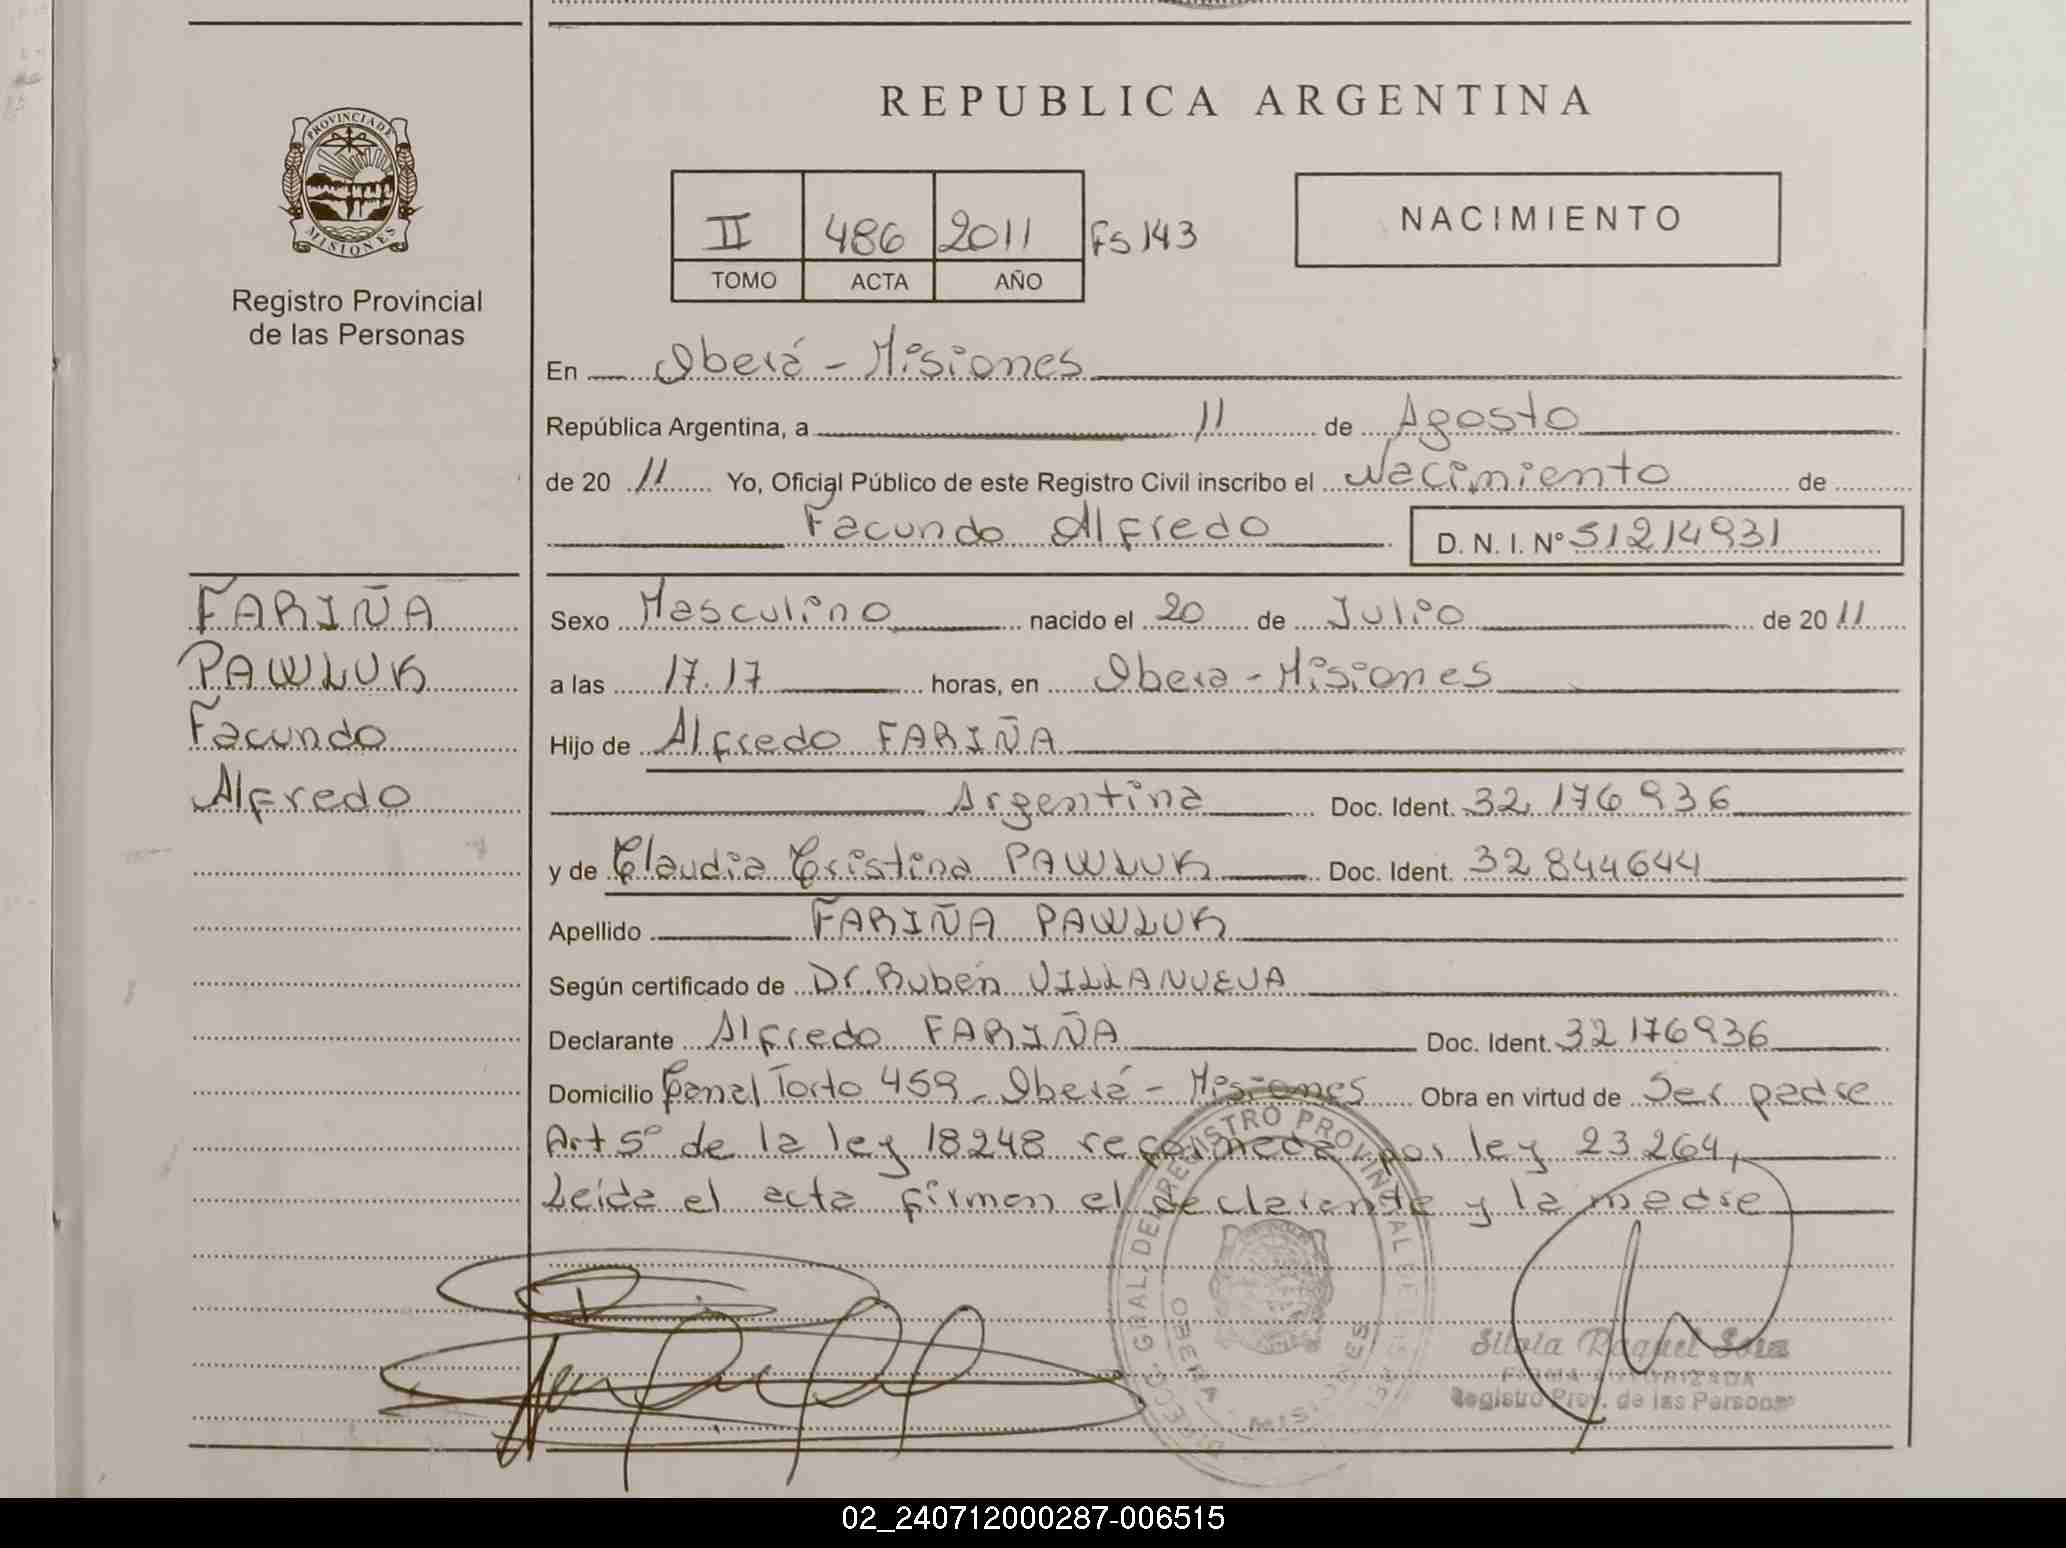 REPUBLICA ARGENTINA
PROVINCIA DE
MISIONES
Registro Provincial
de las Personas
II 486 2011 Fs 143
TOMO ACTA AÑO
NACIMIENTO
En Oberá - Misiones
República Argentina, a 11 de Agosto
de 20 11 Yo, Oficial Público de este Registro Civil inscribo el Nacimiento de
Facundo Alfredo D. N. I. Nº 51214931
FARIÑA
PAWLUK
Facundo
Alfredo
Sexo Masculino nacido el 20 de Julio de 20 11
a las 17.17 horas, en Obera - Misiones
Hijo de Alfredo FARIÑA
Argentina Doc. Ident. 32.176.936
y de Claudia Cristina PAWLUK Doc. Ident. 32 844644
Apellido FARIÑA PAWLUK
Según certificado de Dr Rubén VILLANUEVA
Declarante Alfredo FARIÑA Doc. Ident. 32 176936
Domicilio Canal Torto 459 - Oberá - Misiones Obra en virtud de Ser padre
Art 5º de la ley 18248 reformada por ley 23264,
Leida el acta firman el declarante y la madre
DIRECC. GRAL. DEL REGISTRO PROVINCIAL DE
OBERA MISIONES
Silvia Raquel
FIRMA AUTORIZADA
Registro Prov. de las Personas
02_240712000287-006515